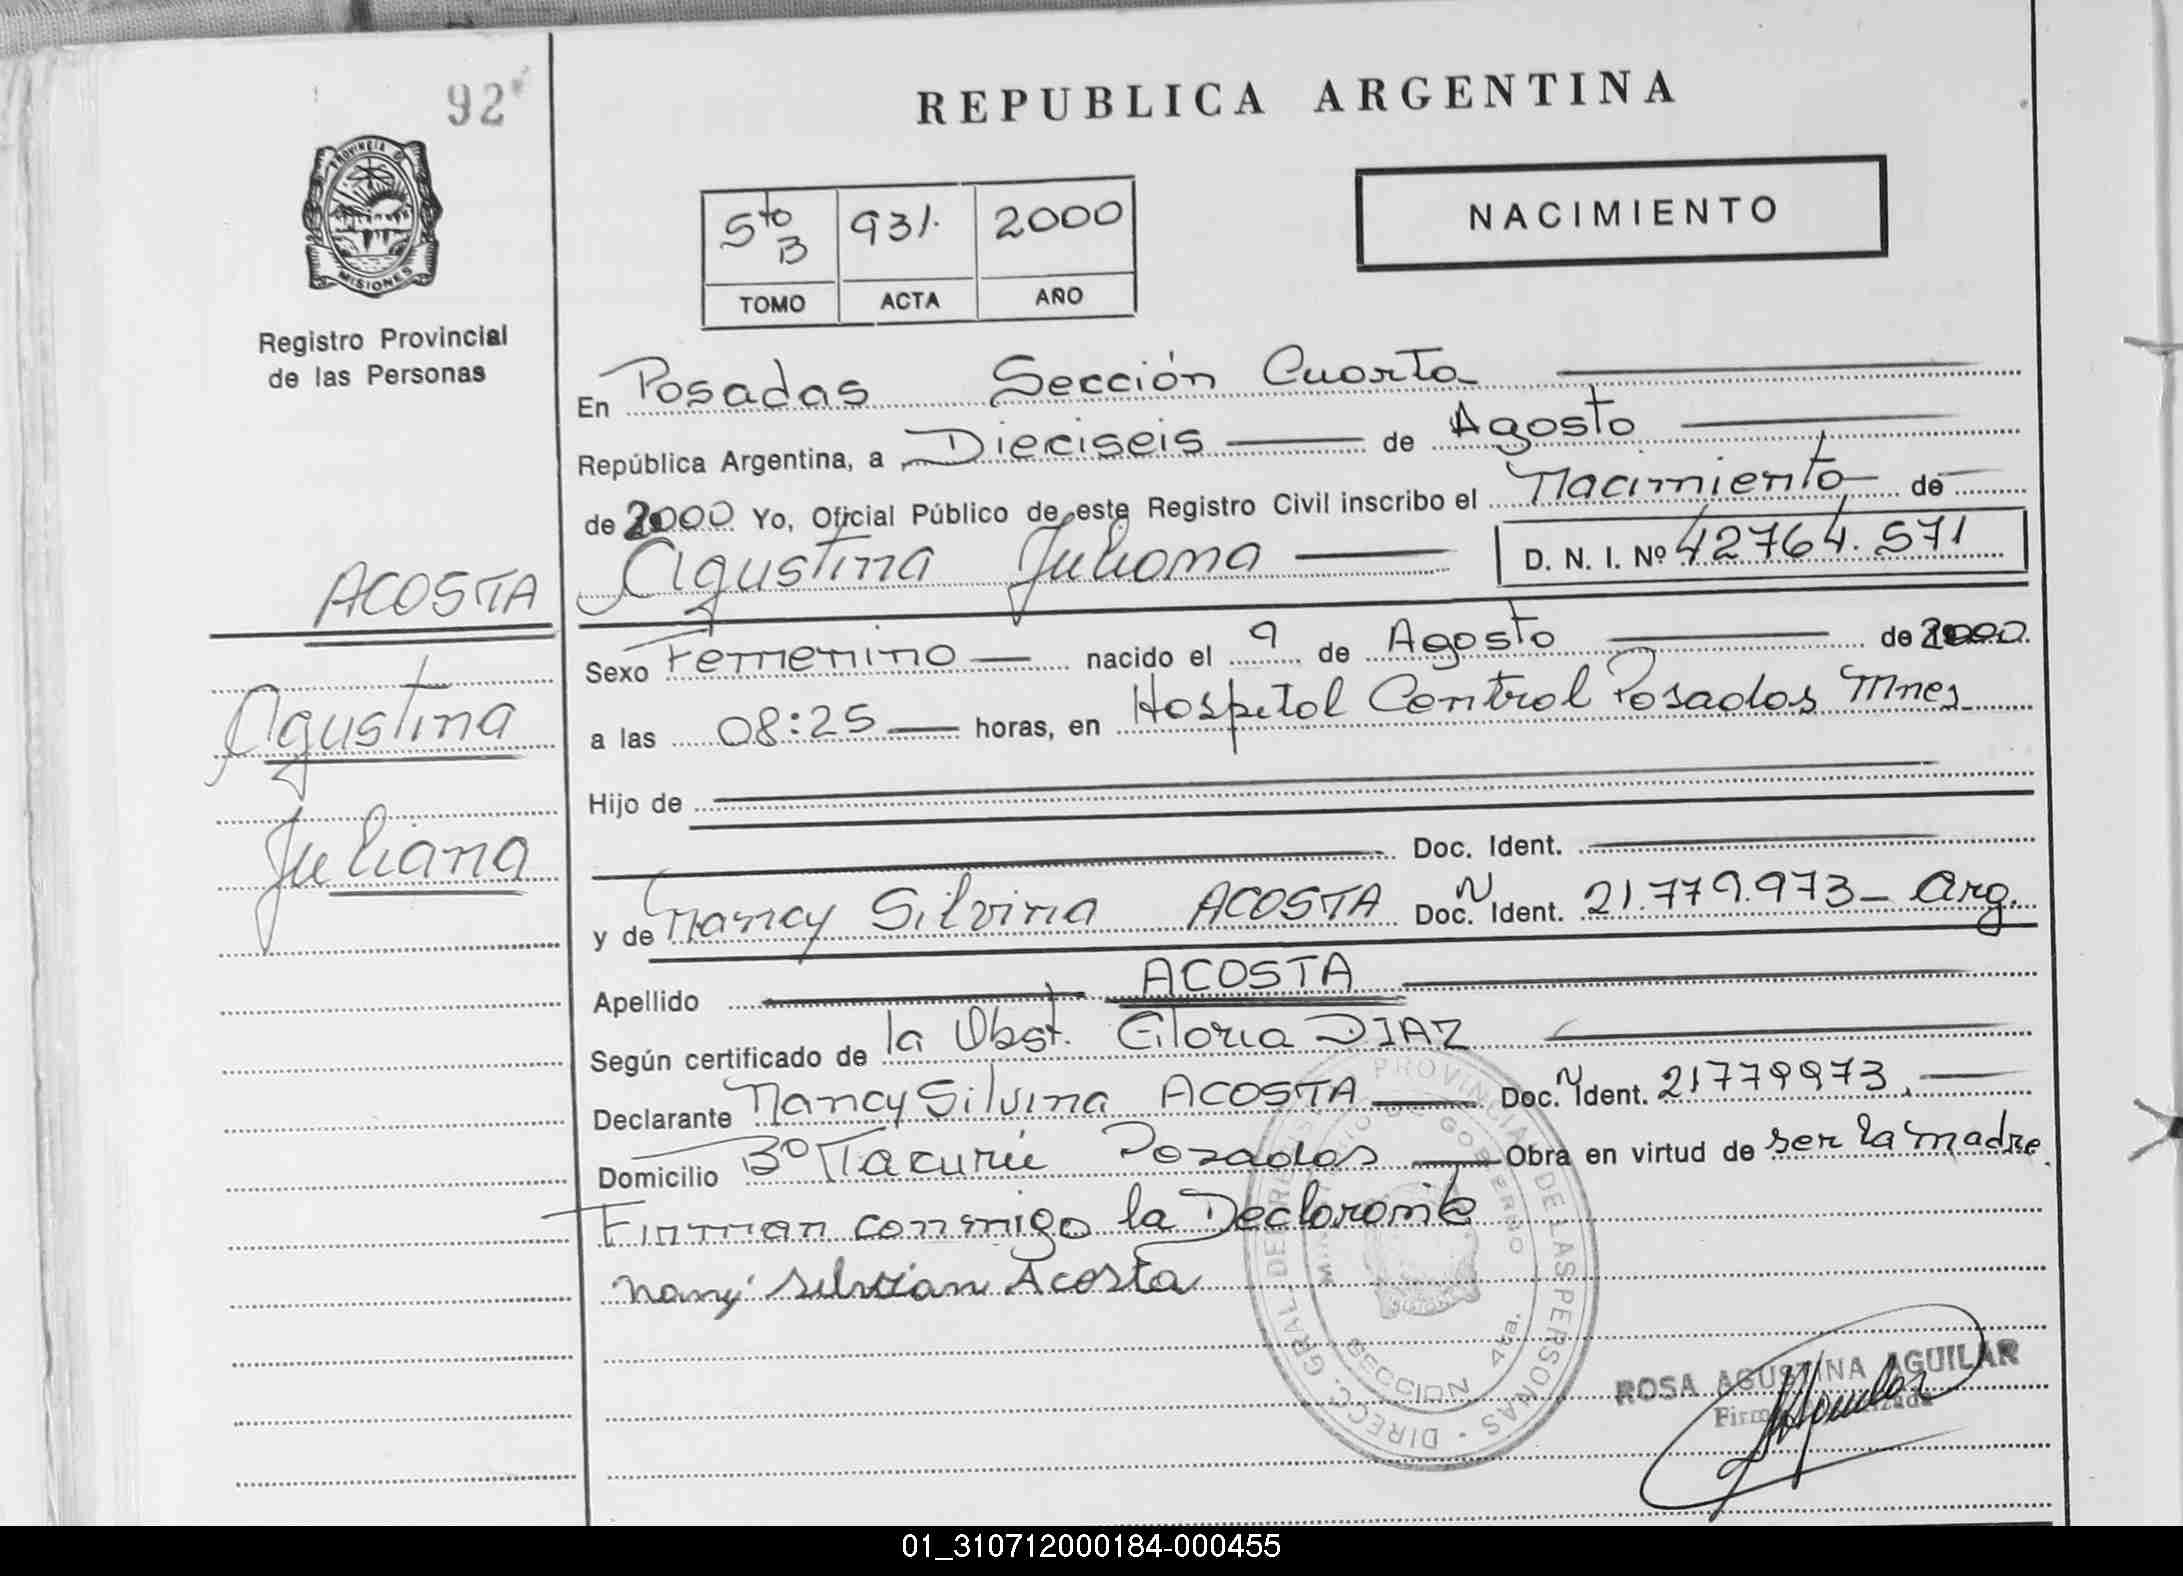 92
REPUBLICA ARGENTINA
PROVINCIA DE
MISIONES
5to B 931. 2000
TOMO ACTA AÑO
NACIMIENTO
Registro Provincial
de las Personas
En Posadas Sección Cuarta
República Argentina, a Dieciseis de Agosto
de 2000 Yo, Oficial Público de este Registro Civil inscribo el Nacimiento de
Agustina Juliana D. N. I. Nº 42764.571
ACOSTA
Agustina
Juliana
Sexo Femenino nacido el 9 de Agosto de 2000.
a las 08:25 horas, en Hospital Central Posadas Mnes
Hijo de
Doc. Ident.
y de Nancy Silvina ACOSTA Doc. N Ident. 21.779.973 - Arg.
Apellido ACOSTA
Según certificado de la Obst. Gloria DIAZ
Declarante Nancy Silvina ACOSTA Doc. N Ident. 21779973.
Domicilio Bº Tacurú Posadas Obra en virtud de ser la madre.
Firman conmigo la Declarante
Acosta
DIRECC. GRAL. DE REG. PROVINCIAL DE LAS PERSONAS
GOBIERNO
SECCION 4ta.
ROSA AGUSTINA AGUILAR
01_310712000184-000455